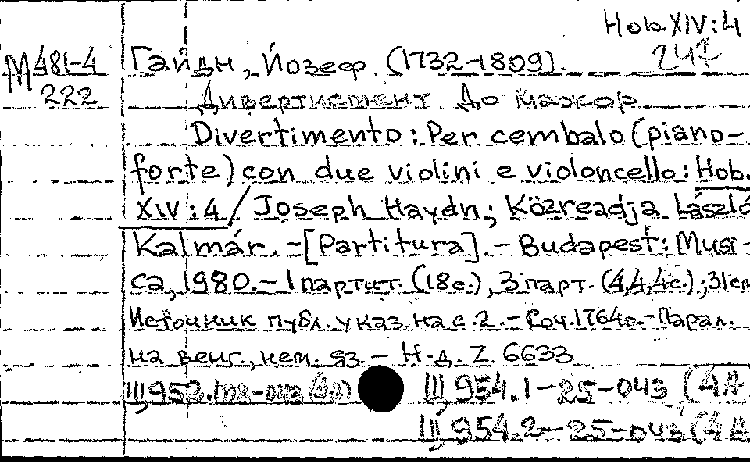 Hob. XIV:4
М 481-4 Гайдн, Йозеф (1732-1809).
247
222
Дивертисмент До мажор
Divertimento: Per cembalo (piano-
forte) con due violini e violoncello: Hob.
XIV:4 / Joseph Haydn; Közreadja László
Kalmár. - [Partitura]. - Budapest: Musi-
ca, 1980. - 1 партит. (18с.), 3 парт. (4,4,4с.); 31см
Источник публ. указ. на с. 2. - Соч. 1764г. - Парал.
на венг., нем. яз. - Н.д. Z. 6633
III, 954.1-25-043 (4А
III, 954.2-25-043 (4А